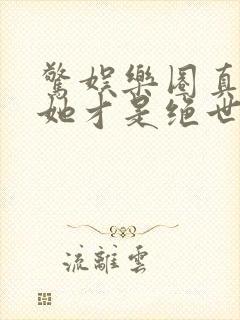 驚娛樂圈真
她才是絕世
流離雲